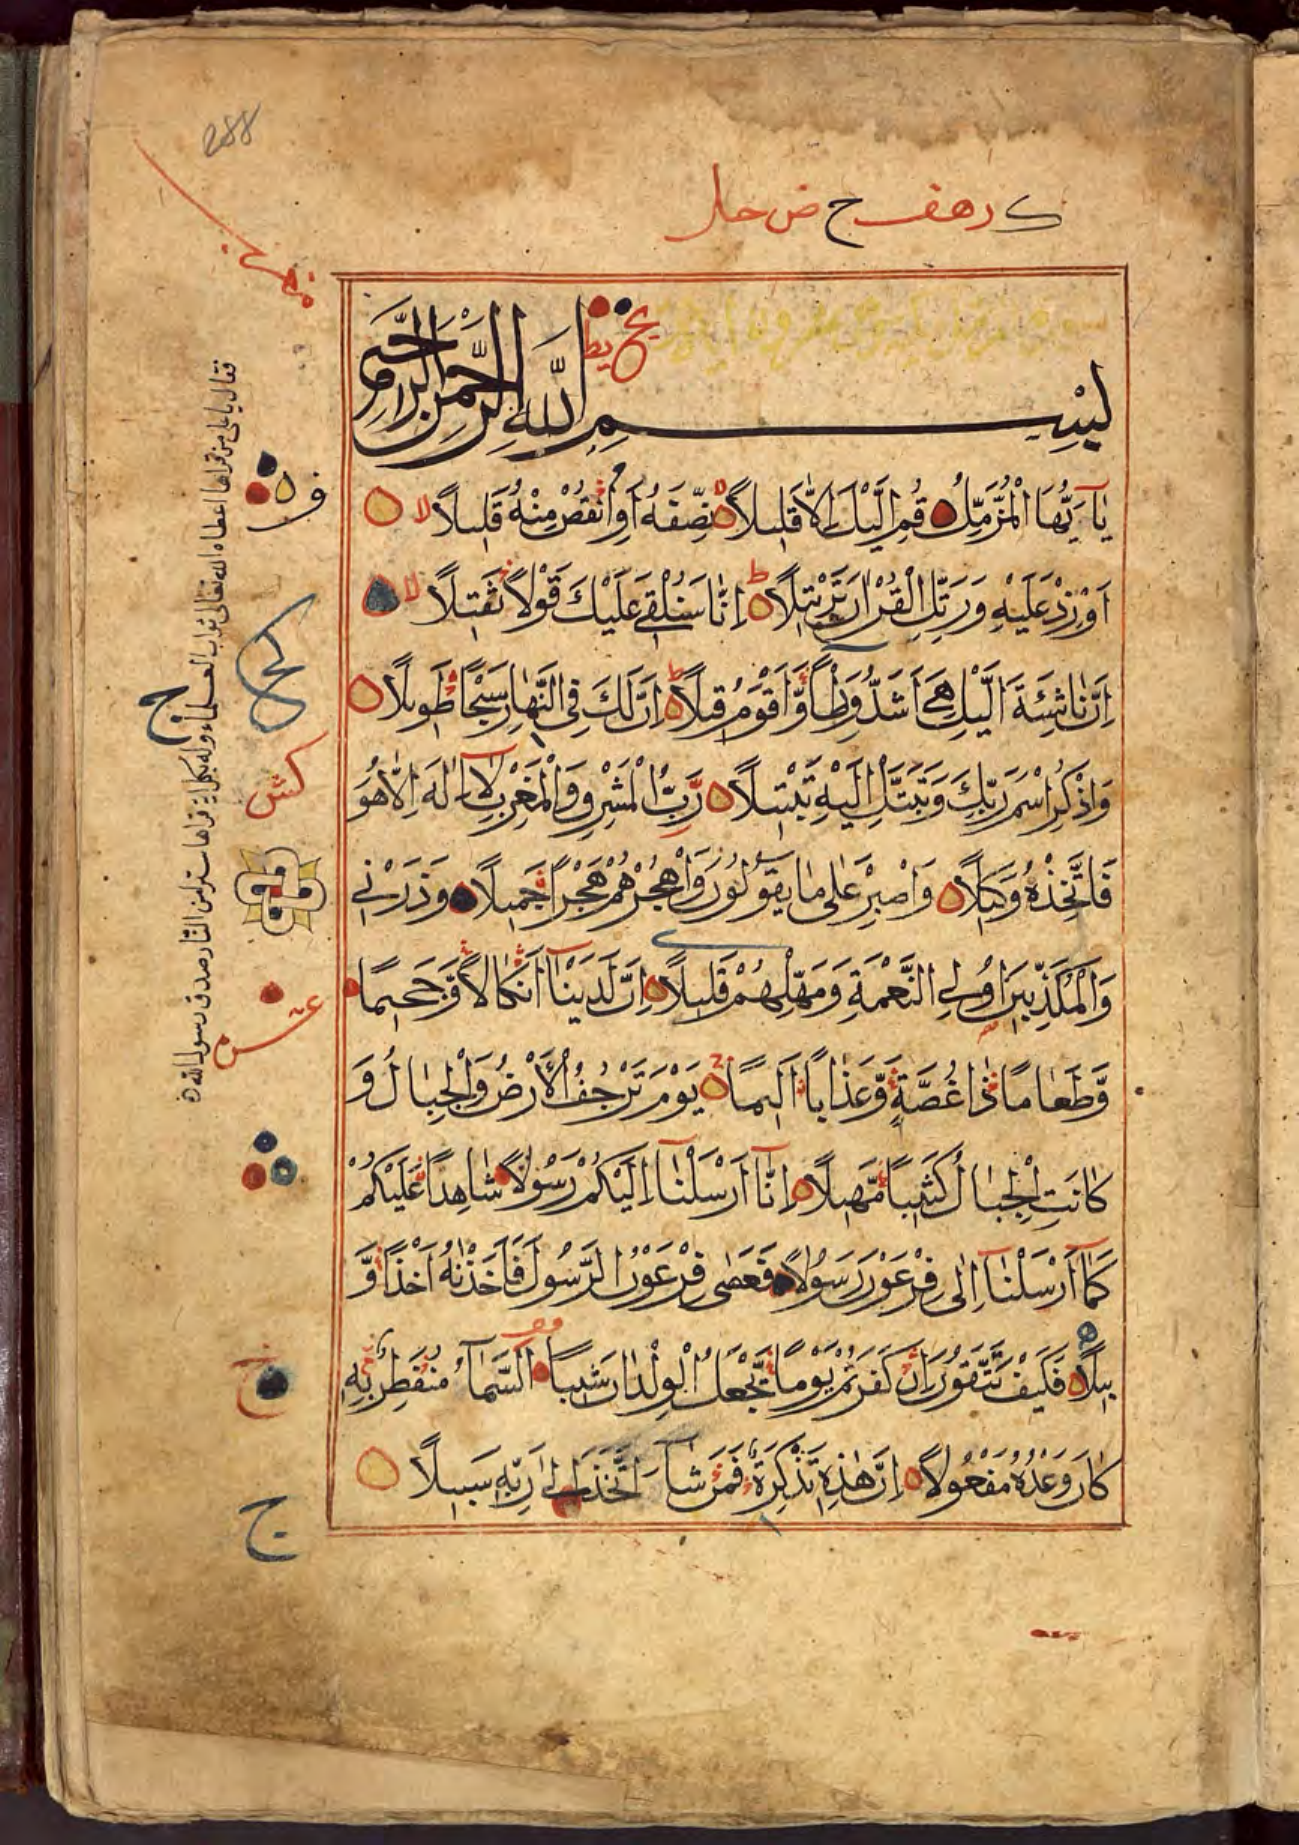 288
بسم الله الرحمن الرحيم
يَآ اَيُّهَا الْمُزَّمِّلُ قُمِ الَّيْلَ اِلَّا قَلِيلًا نِصْفَهُ اَوِ انْقُصْ مِنْهُ قَلِيلًا لا
اَوْ زِدْ عَلَيْهِ وَرَتِّلِ الْقُرْاٰنَ تَرْتِيلًا ط اِنَّا سَنُلْقِي عَلَيْكَ قَوْلًا ثَقِيلًا لا
اِنَّ نَاشِئَةَ الَّيْلِ هِيَ اَشَدُّ وَطْأً وَّاَقْوَمُ قِيلًا ط اِنَّ لَكَ فِي النَّهَارِ سَبْحًا طَوِيلًا
وَاذْكُرِ اسْمَ رَبِّكَ وَتَبَتَّلْ اِلَيْهِ تَبْتِيلًا رَبُّ الْمَشْرِقِ وَالْمَغْرِبِ لَآ اِلٰهَ اِلَّا هُوَ
فَاتَّخِذْهُ وَكِيلًا وَاصْبِرْ عَلٰى مَا يَقُولُونَ وَاهْجُرْهُمْ هَجْرًا جَمِيلًا وَذَرْنِي
وَالْمُكَذِّبِينَ اُولِي النَّعْمَةِ وَمَهِّلْهُمْ قَلِيلًا اِنَّ لَدَيْنَآ اَنْكَالًا وَّجَحِيمًا
وَّطَعَامًا ذَا غُصَّةٍ وَّعَذَابًا اَلِيمًا يَوْمَ تَرْجُفُ الْاَرْضُ وَالْجِبَالُ وَ
كَانَتِ الْجِبَالُ كَثِيبًا مَّهِيلًا اِنَّآ اَرْسَلْنَآ اِلَيْكُمْ رَسُولًا شَاهِدًا عَلَيْكُمْ
كَمَآ اَرْسَلْنَآ اِلٰى فِرْعَوْنَ رَسُولًا فَعَصٰى فِرْعَوْنُ الرَّسُولَ فَاَخَذْنٰهُ اَخْذًا وَّ
بِيلًا فَكَيْفَ تَتَّقُونَ اِنْ كَفَرْتُمْ يَوْمًا يَّجْعَلُ الْوِلْدَانَ شِيبًا السَّمَآءُ مُنْفَطِرٌ بِهِ
كَانَ وَعْدُهُ مَفْعُولًا اِنَّ هٰذِهِ تَذْكِرَةٌ فَمَنْ شَآءَ اتَّخَذَ اِلٰى رَبِّهِ سَبِيلًا
فقال يا علي من قراها اعطاه الله تعالى ثواب العلماء وله بكل اية قراها ستر من النار صدق رسول الله
ج
ج